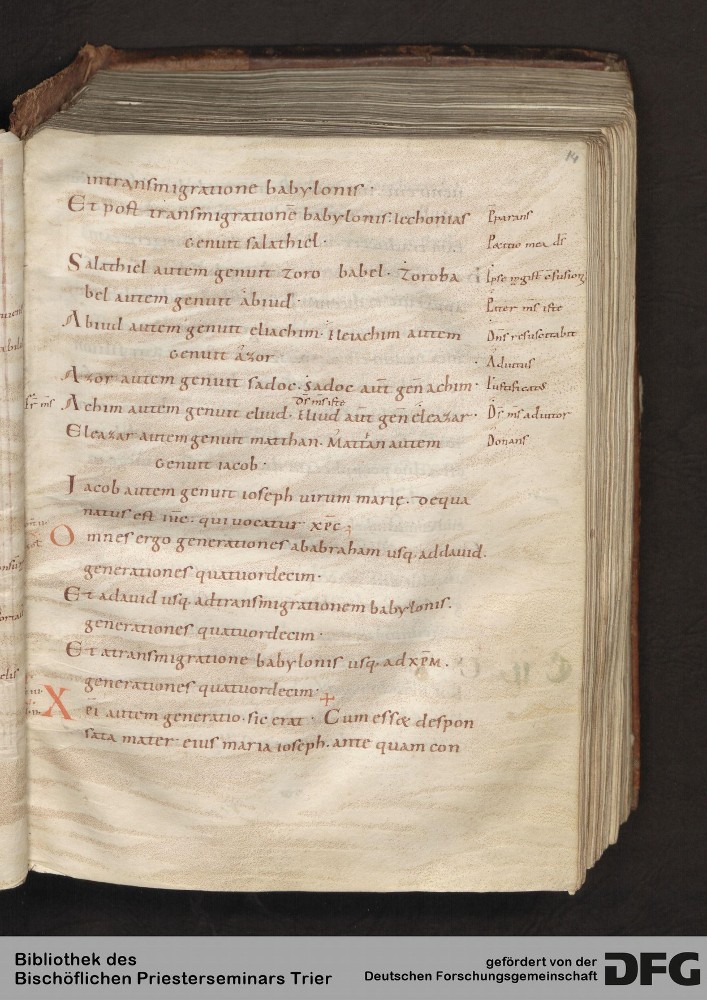 14
intransmigratione babylonis.
Et post transmigrationē babylonis. Iechonias
genuit salathiel.
Salathiel autem genuit zoro babel. Zoroba
bel autem genuit abiud.
Abiud autem genuit eliachim. Heiachim autem
genuit azor
Azor autem genuit sadoc. Sadoc aut̄ gen̄ achim.
d̄s m̄s iste
Achim autem genuit eliud. Heliud aut̄ gen̄ eleazar.
Eleazar autem genuit matthan. Matthan autem
genuit iacob.
Iacob autem genuit ioseph virum marię. dequa
natus est ih̄c. qui vocatur xp̄c
Omnes ergo generationes ababraham usq. addauid.
generationes quatuordecim.
Et adauid usq. adtransmigrationem babylonis.
generationes quatuordecim.
Et atransmigratione babylonis usq. adxp̄m.
generationes quatuordecim.
Xp̄i autem generatio. sic erat. Cum essæ despon
sata mater eius maria ioseph. ante quam con
p̄parans
Pætitio mea d̄s
Pater m̄s iste
Dn̄s resuscitabit
Adiutus
Iustificatus
D̄s m̄s adiutor
Donans
Bibliothek des
Bischöflichen Priesterseminars Trier
gefördert von der
Deutschen Forschungsgemeinschaft
DFG